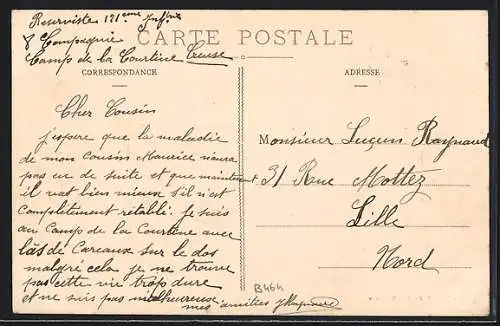 Reserviste 121eme Inf
8 Compagnie
Camp de la Courtine Creuse
CARTE POSTALE
CORRESPONDANCE
Cher Cousin
j'espere que la maladie
de mon cousin Maurice n'aura
pas eu de suite et que maintenant
il vat bien mieux s'il n'est
completement rétabli. je suis
au Camp de la Courtine avec
l'as de Careaux sur le dos
malgré cela je ne trouve
pas cette vie trop dure
et ne suis pas malheureuse.
mes amities
B464
ADRESSE
Monsieur Luçiens Raynaud
31 Rue Mottez
Lille
Nord